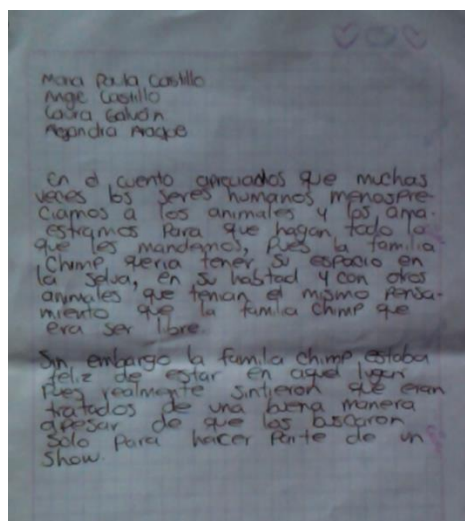 Maria Paula Castillo
Angie Castillo
Laura Galvón
Alejandra Araque
En el cuento que muchas
veces los seres humanos menospre-
ciamos a los animales y los ama-
estramos para que hagan todo lo
que les mandemos, pues la familia
Chimp queria tener su espacio en
la selva, en su habtad y con otros
animales que tenian el mismo pensa-
miento que la familia chimp que
era ser libre.
Sin embargo la familia chimp estaba
feliz de estar en aquel lugar
Pues realmente sintieron que eran
tratados de una buena manera
apesar de que los buscaron
Solo para hacer parte de un
Show.